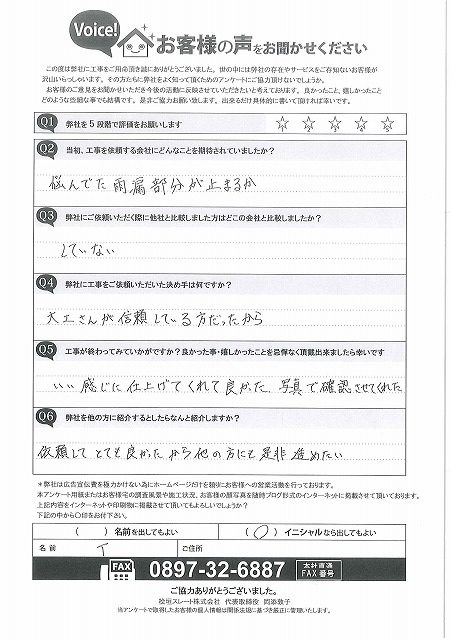 Voice!
お客様の声をお聞かせください
この度は弊社に工事をご用命頂き誠にありがとうございました。世の中には弊社の存在やサービスをご存知ないお客様が
沢山いらっしゃいます。その方たちに弊社をよく知って頂くためのアンケートにご協力頂けないでしょうか。
お客様のご意見をお聞かせいただき今後の活動に反映させていただきたいと考えております。良かったこと、嬉しかったこと
どのような些細な事でも結構です。是非ご協力お願い致します。出来るだけ具体的に書いて頂ければ幸いです。
Q1 弊社を5段階で評価をお願いします ☆ ☆ ☆ ☆ ☆
Q2 当初、工事を依頼する会社にどんなことを期待されていましたか?
悩んでた雨漏部分が止まるか
Q3 弊社にご依頼いただく際に他社と比較しました方はどこの会社と比較しましたか?
していない
Q4 弊社に工事をご依頼いただいた決め手は何ですか?
大工さんが信頼している方だったから
Q5 工事が終わってみていかがですか?良かった事・嬉しかったことを忌憚なく頂戴出来ましたら幸いです
いい感じに仕上げてくれて良かった 写真で確認させてくれた
Q6 弊社を他の方に紹介するとしたらなんと紹介しますか?
依頼して とても良かったから他の方にも是非進めたい
＊弊社は広告宣伝費を極力かけない為にホームページだけを頼りにお客様への営業活動を行っております。
本アンケート用紙またはお客様宅の調査風景や施工状況、お客様の顔写真を随時ブログ形式のインターネットに掲載させて頂いております。
上記内容をインターネットや印刷物に掲載させて頂いてもよろしいでしょうか?
下記の中から〇印をお付下さい。
( ) 名前を出してもよい ( 〇 ) イニシャルなら出してもよい
名 前 T ご住所
FAX 0897-32-6887 本社直通 FAX番号
ご協力ありがとうございました。
桧垣スレート株式会社 代表取締役 岡添敦子
当アンケートで取得したお客様の個人情報は関係法規に基づき厳正に管理いたします。